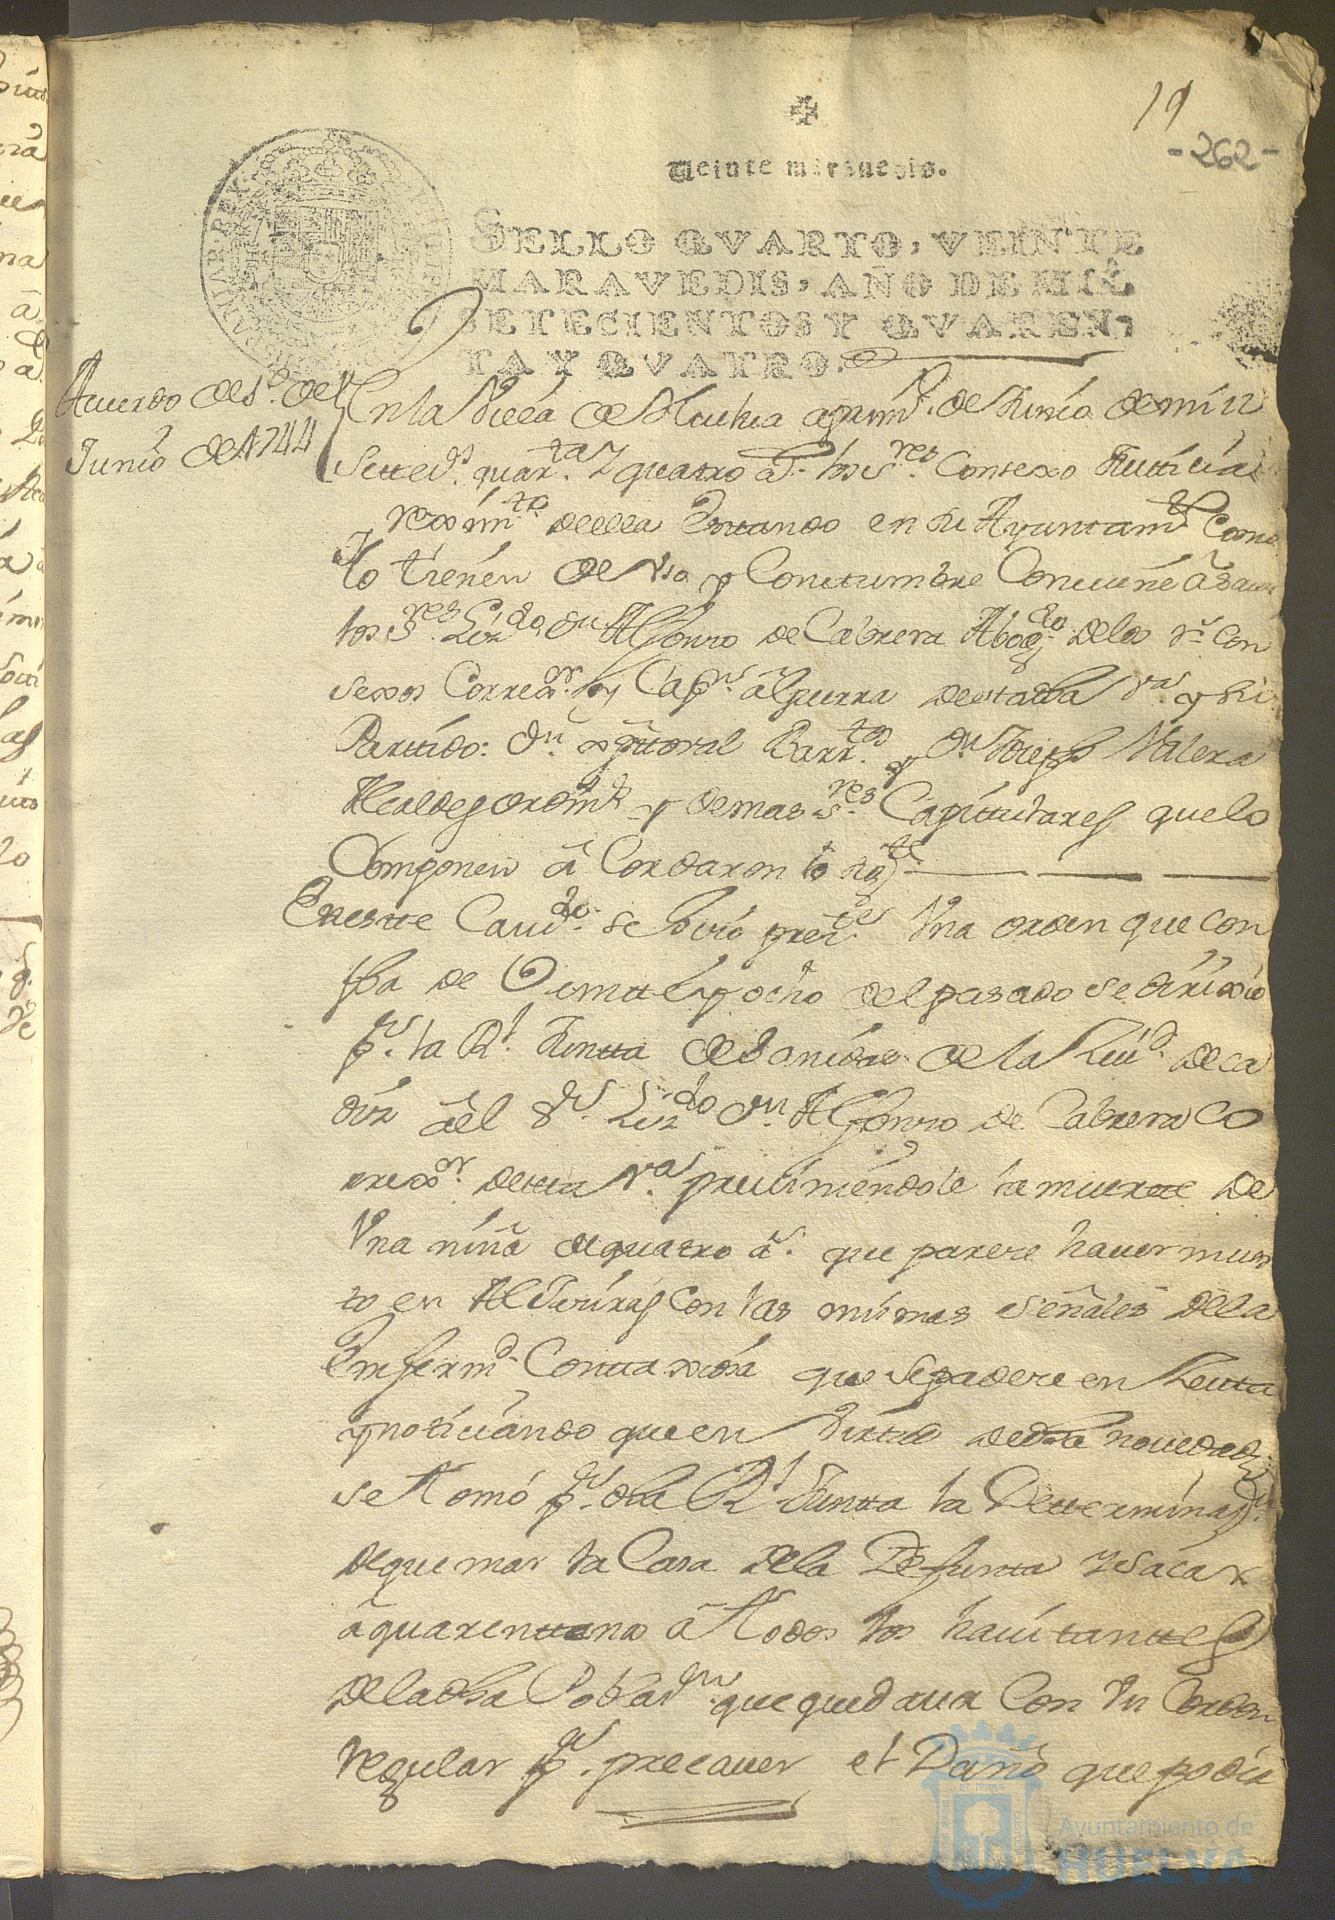 19
-262-
Veinte maravedis.
SELLO QVARTO, VEINTE
MARAVEDIS, AÑO DE MIL
SETECIENTOS Y QVAREN,
TA Y QVATRO.
PHILIPP
HISPANIAR REX
Acuerdo de 1º de
Junio de 1744
En la Villa de Huelva a prim.º de Junio de mill
Settec.s quar.ta y quatro a.s los S.res Consexo Justicia
y rexim.to de ella Estando en su Ayuntam.to Como
lo tienen de Uso y Costumbre Conviene â saver
los S.res Liz.do D.n Alfonso de Cabrera Abog.do de los r.s Con
sexos Correx.or y Cap.n â guerra de esta dha V.a y su
Partido: D.n Xptoval Barr.tos y D.n Joseph Valera
Alcaldes ordin.s y demas S.res Capitulares que lo
Componen â Cordaron lo sig.te
En este Cavd.o se hivo pres.te Una orden que con
fha de Veintte y ocho del pasado se dirixio
p.r la R.l Juntta de Sanidad de la Ciu.d de Ca
diz âel S.r Liz.do D.n Alfonso de Cabrera Co
rrex.or desta V.a previniendole la muertte de
Una niña de quatro a.s que parece haver muer
to en Alxeciras Con las mismas señales de la
Enferm.d Conttaxiosa que se padece en Ceutta
y noticiando que en Virtud de dha novedad
se tomó p.r dha R.l Juntta la Determinaz.n
de quemar la Casa de la Defunta y sacar
â quarenttena â todos los havitanttes
de la dha Poblaz.n que quedava Con Un Cordon
regular p.a precaver el Daño que podia
Ayuntamiento de
HUELVA